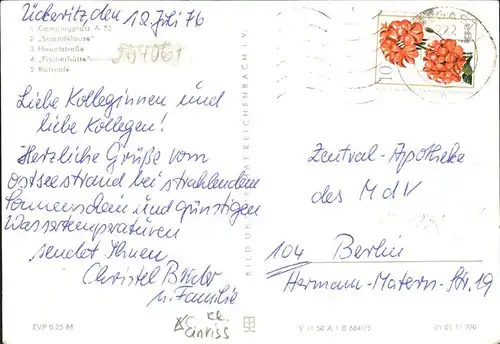 Ückeritz, den 12. Juli 76
1 Campingplatz A 52
2 „Strandklause"
3 Hauptstraße
4 „Fischerhütte"
5 Rancafe
504061
Liebe Kolleginnen und
liebe Kollegen!
Herzliche Grüße vom
Ostseestrand bei strahlendem
Sonnenschein und günstigen
Wassertemperaturen
sendet Ihnen
Christel
u. Familie
kl.
Einriss
EVP 0.25 M
BILD UND HEIMAT REICHENBACH I. V.
10
22
Zentral-Apotheke
des MdV
104 Berlin
Hermann-Matern-Str. 19
V 11 50 A 1 B
01 01 11 770